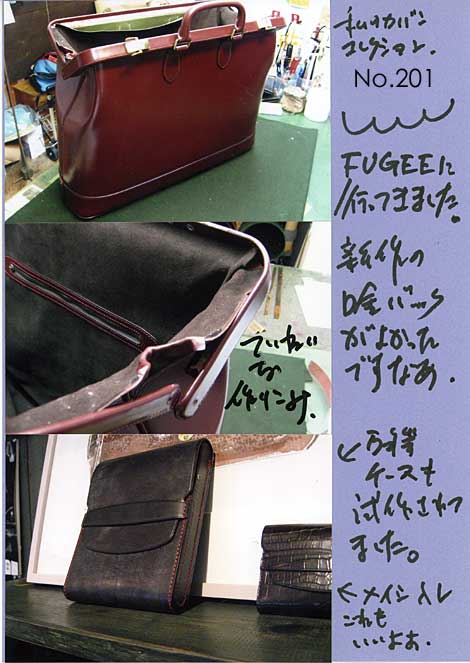 私のカバン
コレクション.
No.201
FUGEEに
行ってきました。
新作の
口金バック
がよかった
ですなあ.
ていねい
な
作りこみ.
ケースも
試作されて
ました。
←メイシ入レ
これも
いいよぉ.